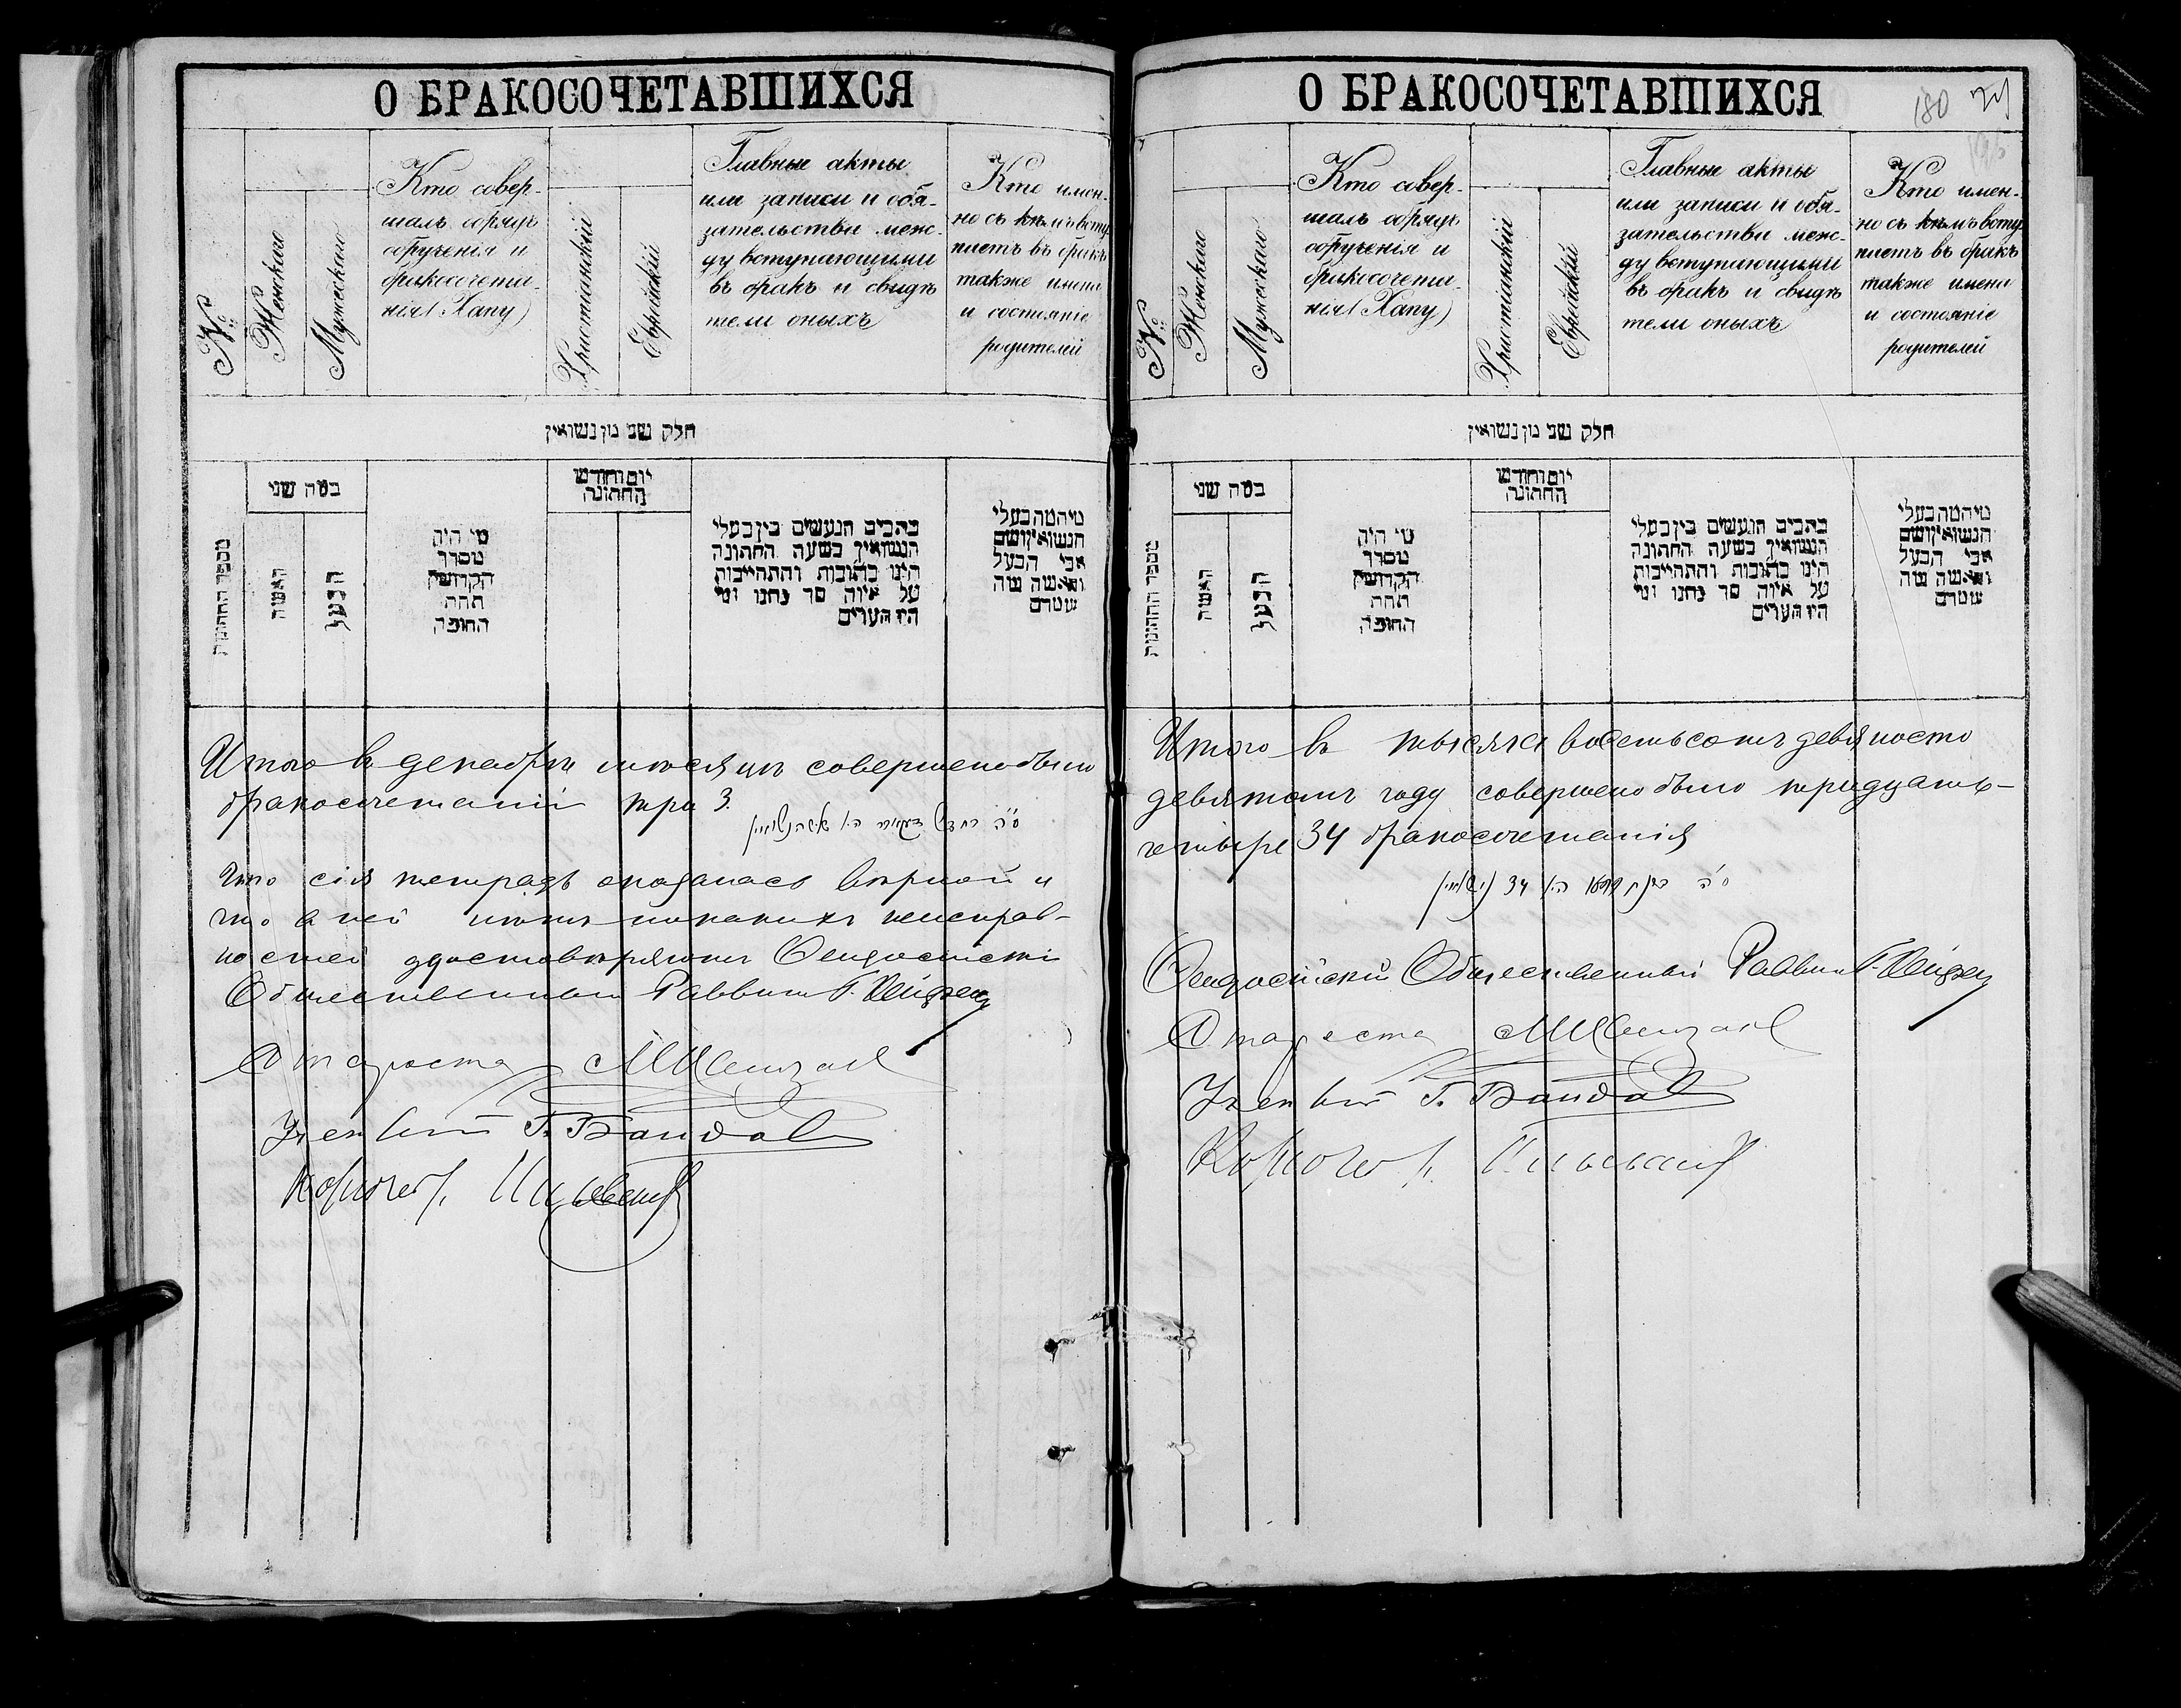 О БРАКОСОЧЕТАВШИХСЯ
№
Женскаго
Мужескаго
Кто совер-
шалъ обрядъ
обрученія и
бракосочета-
нія (Хапу)
Христіанскій
Еврейскій
Главные акты
или записи и обя-
зательства меж-
ду вступающими
въ бракъ и свидѣ
тели оныхъ
Кто имен-
но съ кѣмъ всту
паетъ въ бракъ
также имена
и состояніе
родителей
חלק שני מן נשואין
מספר החתונות
כמה שני
האשה
הבעל
מי היה
מסדר
הקדושין
תחת
החופה
יום וחודש
החתונה
כתבים הנעשים בין בעלי
הנשואין בשעה החתונה
היינו כתובות והתחייבות
על איזה סך נתנו ומי
היו העדים
מי המה בעלי
הנשואין ושם
אבי הבעל
והאשה מה
שמם
Итого въ декабрѣ мѣсяцѣ совершено было
бракосочетаній три 3.
Что сія тетрадь оказалась вѣрной и
что в ней нѣтъ никакихъ неисправ-
ностей удостовѣряютъ Ѳеодосійскій
Общественный Раввинъ
Староста
Ученый Г. Бандас
Казначей
О БРАКОСОЧЕТАВШИХСЯ
180
№
Женскаго
Мужескаго
Кто совер-
шалъ обрядъ
обрученія и
бракосочета-
нія (Хапу)
Христіанскій
Еврейскій
Главные акты
или записи и обя-
зательства меж-
ду вступающими
въ бракъ и свидѣ
тели оныхъ
Кто имен-
но съ кѣмъ всту
паетъ въ бракъ
также имена
и состояніе
родителей
חלק שני מן נשואין
מספר החתונות
כמה שני
האשה
הבעל
מי היה
מסדר
הקדושין
תחת
החופה
יום וחודש
החתונה
כתבים הנעשים בין בעלי
הנשואין בשעה החתונה
היינו כתובות והתחייבות
על איזה סך נתנו ומי
היו העדים
מי המה בעלי
הנשואין ושם
אבי הבעל
והאשה מה
שמם
Итого въ тысяча восемьсотъ девяносто
девятомъ году совершено было тридцать-
четыре 34 бракосочетанія
34
Ѳеодосійскій Общественный Раввинъ
Староста
Ученый Г. Бандас
Казначей